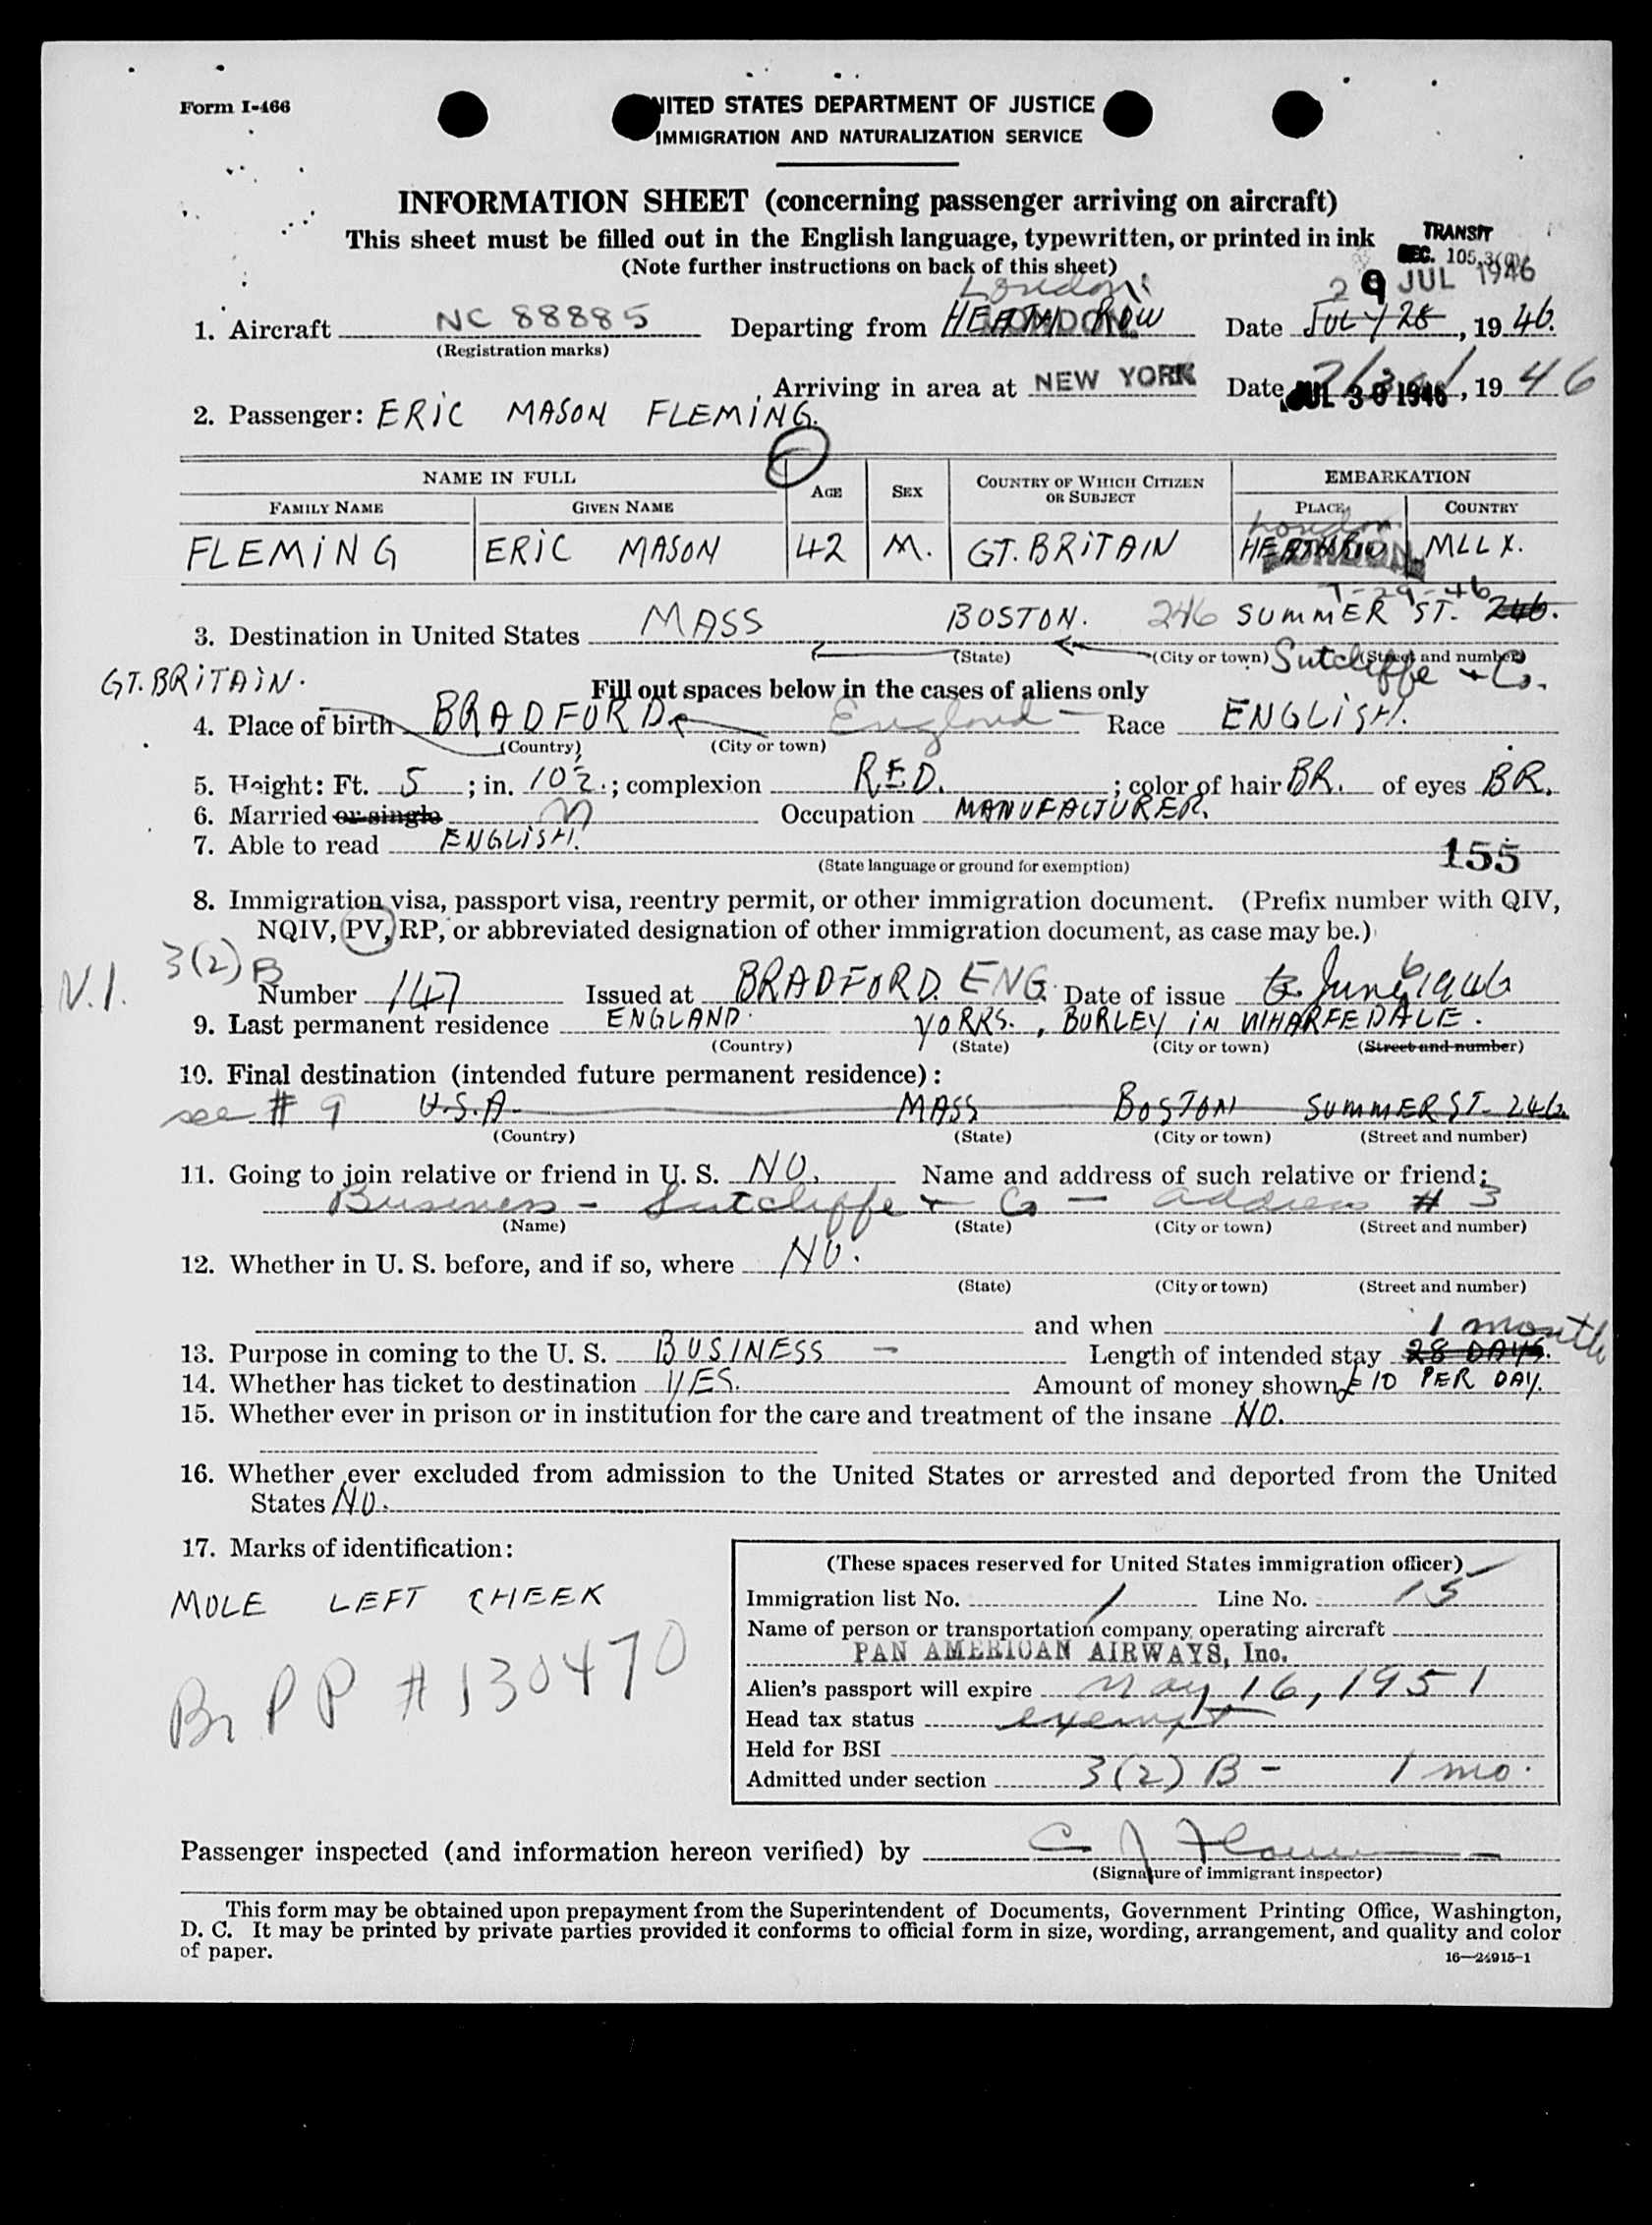 Form I-466
UNITED STATES DEPARTMENT OF JUSTICE
IMMIGRATION AND NATURALIZATION SERVICE
INFORMATION SHEET (concerning passenger arriving on aircraft)
This sheet must be filled out in the English language, typewritten, or printed in ink
TRANSIT
(Note further instructions on back of this sheet)
SEC. 105.3(a)
London
29 JUL 1946
1. Aircraft NC 88885 Departing from HEATH ROW LONDON Date JULY 28, 1946.
(Registration marks)
Arriving in area at NEW YORK Date JUL 30 1946, 1946
2. Passenger: ERIC MASON FLEMING.
NAME IN FULL AGE SEX COUNTRY OF WHICH CITIZEN OR SUBJECT EMBARKATION
FAMILY NAME GIVEN NAME PLACE COUNTRY
London
FLEMING ERIC MASON 42 M. GT. BRITAIN HEATHROW LONDON MLLX.
7-29-46
3. Destination in United States MASS BOSTON. 246 SUMMER ST. 246.
(State) (City or town) (Street and number)
Sutcliffe & Co.
GT. BRITAIN.
Fill out spaces below in the cases of aliens only
4. Place of birth BRADFORD England Race ENGLISH.
(Country) (City or town)
5. Height: Ft. 5; in. 10½; complexion RED.; color of hair BR. of eyes BR.
6. Married or single M Occupation MANUFACTURER.
7. Able to read ENGLISH.
(State language or ground for exemption)
155
8. Immigration visa, passport visa, reentry permit, or other immigration document. (Prefix number with QIV,
NQIV, PV, RP, or abbreviated designation of other immigration document, as case may be.)
V.1. 3(2)B
Number 147 Issued at BRADFORD. ENG. Date of issue June 6 1946
9. Last permanent residence ENGLAND. YORKS., BURLEY IN WHARFEDALE.
(Country) (State) (City or town) (Street and number)
10. Final destination (intended future permanent residence):
see # 9 U.S.A. MASS BOSTON SUMMER ST. 246.
(Country) (State) (City or town) (Street and number)
11. Going to join relative or friend in U. S. NO. Name and address of such relative or friend:
Business - Sutcliffe & Co - address # 3
(Name) (State) (City or town) (Street and number)
12. Whether in U. S. before, and if so, where NO.
(State) (City or town) (Street and number)
and when
1 month
13. Purpose in coming to the U. S. BUSINESS - Length of intended stay 28 DAYS.
14. Whether has ticket to destination YES. Amount of money shown £10 PER DAY.
15. Whether ever in prison or in institution for the care and treatment of the insane NO.
16. Whether ever excluded from admission to the United States or arrested and deported from the United
States NO.
17. Marks of identification:
MOLE LEFT CHEEK
Br PP # 130470
(These spaces reserved for United States immigration officer)
Immigration list No. 1 Line No. 15
Name of person or transportation company operating aircraft
PAN AMERICAN AIRWAYS, Inc.
Alien's passport will expire May 16, 1951
Head tax status exempt
Held for BSI
Admitted under section 3(2) B - 1 mo.
Passenger inspected (and information hereon verified) by C J
(Signature of immigrant inspector)
This form may be obtained upon prepayment from the Superintendent of Documents, Government Printing Office, Washington,
D. C. It may be printed by private parties provided it conforms to official form in size, wording, arrangement, and quality and color
of paper.
16—24915-1